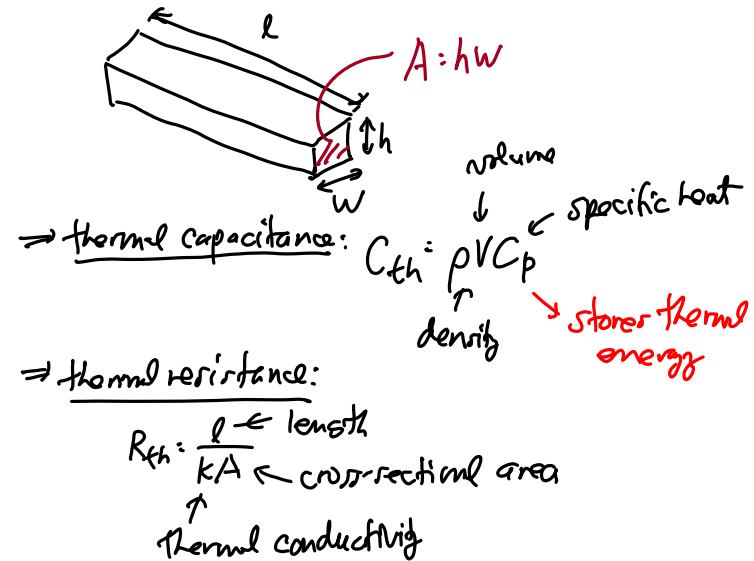 l
A = hw
h
w
volume
specific heat
⇒ thermal capacitance: Cth = ρVCp
density
stores thermal
energy
⇒ thermal resistance:
Rth = l/kA
length
cross-sectional area
thermal conductivity